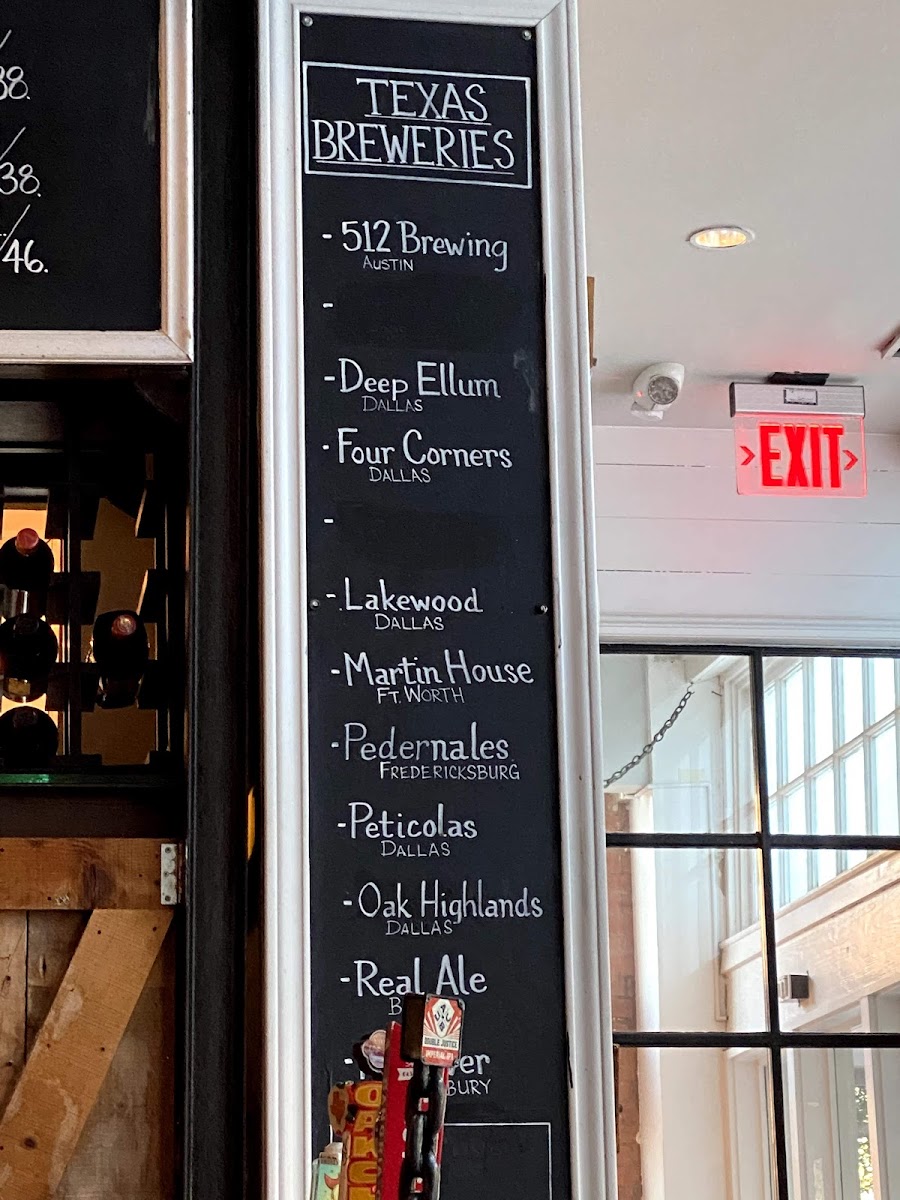 38.
38.
46.
TEXAS
BREWERIES
- 512 Brewing
AUSTIN
-
- Deep Ellum
DALLAS
- Four Corners
DALLAS
-
- Lakewood
DALLAS
- Martin House
FT. WORTH
- Pedernales
FREDERICKSBURG
- Peticolas
DALLAS
- Oak Highlands
DALLAS
- Real Ale
B
ver
BURY
DOUBLE JUSTICE
IMPERIAL IPA
> EXIT >